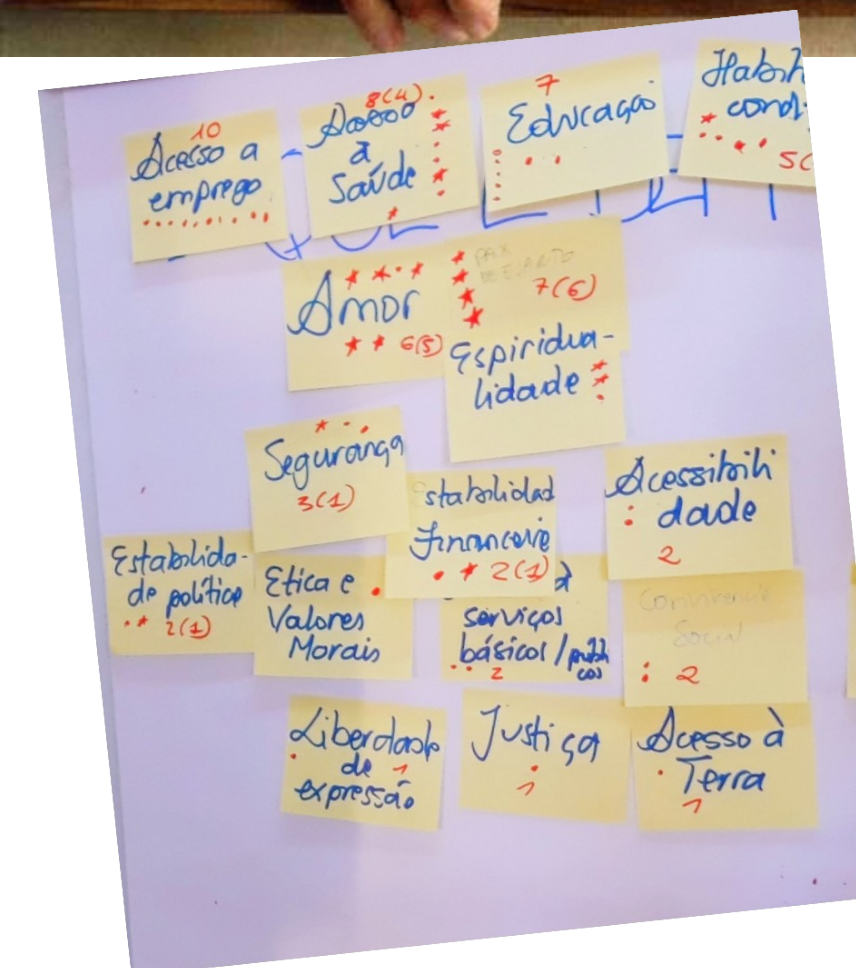 10
Acesso a
emprego
8(4)
Acesso
à
Saúde
7
Educação
Habili
cond
5(
Amor
6(5)
PAX
DE ESPIRITO
7(6)
Espiridua-
lidade
Segurança
3(1)
stabilidad
Financeira
2(1)
Acessibili
dade
2
Estabilida-
de política
2(1)
Etica e
Valores
Morais
à
serviços
básicos/públi
cos
2
Convivencia
Social
2
Liberdade
de 1
expressão
Justiça
1
Acesso à
Terra
1